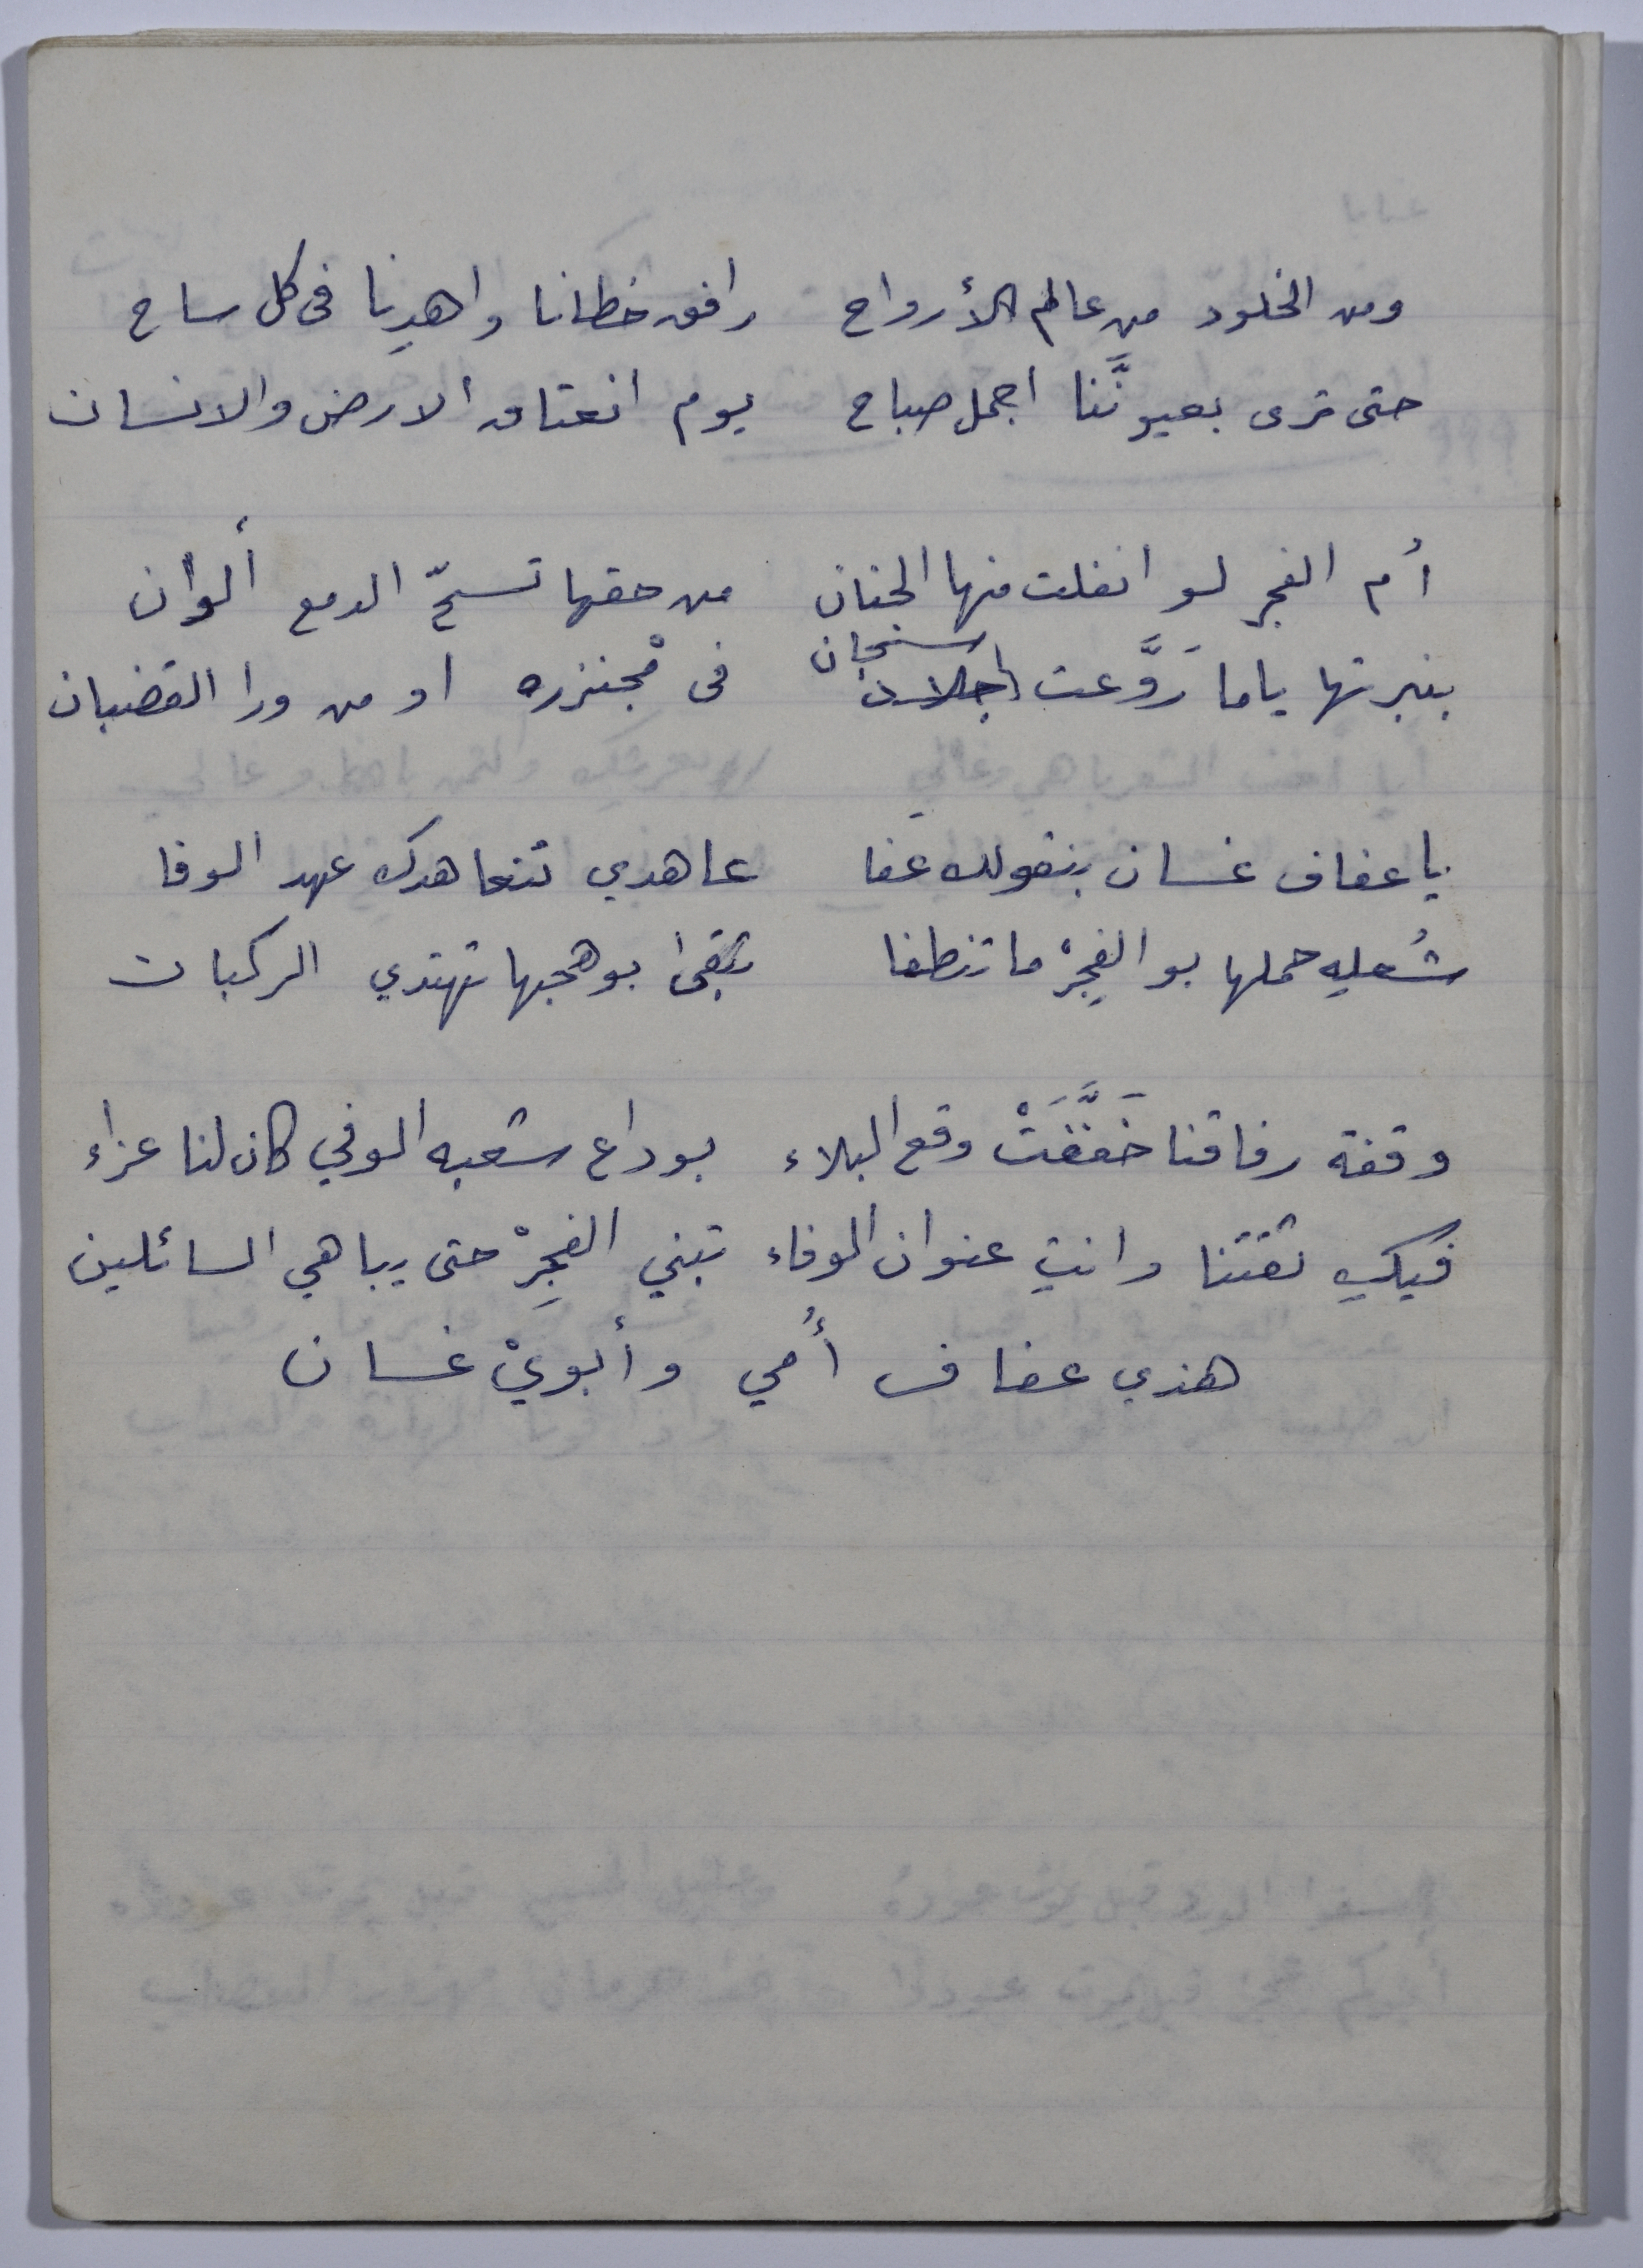 ومن الخلود من عالم الأرواح رافق خطانا واهدِنا في كل ساح
حتى ترى بعيونَّنا اجمل صباح يوم انعتاق الارض والانسان
أم الفجر لو انفلت منها الحنان من حقها تسحّ الدمع ألوان
سجان
بنبرتها ياما رَوَّعت في مْجنزره او من ورا القضبان
يا عفاف غسان بنقولك عفا عاهدي نتعاهدك عهد الوفا
شُعله حملها بو الفِجِرْ ما تنطفا تبقى بوهجها تهتدي الركبان
وقفة رفاقنا خَفَّفَتْ وقع البلاء بوداع شعبه الوفي كان لنا عزاء
فيكِ ثقتنا وانتِ عنوان الوفاء تبني الفجِرْ حتى يباهي السائلين
هذي عفاف أُمي وأبويْ غسان